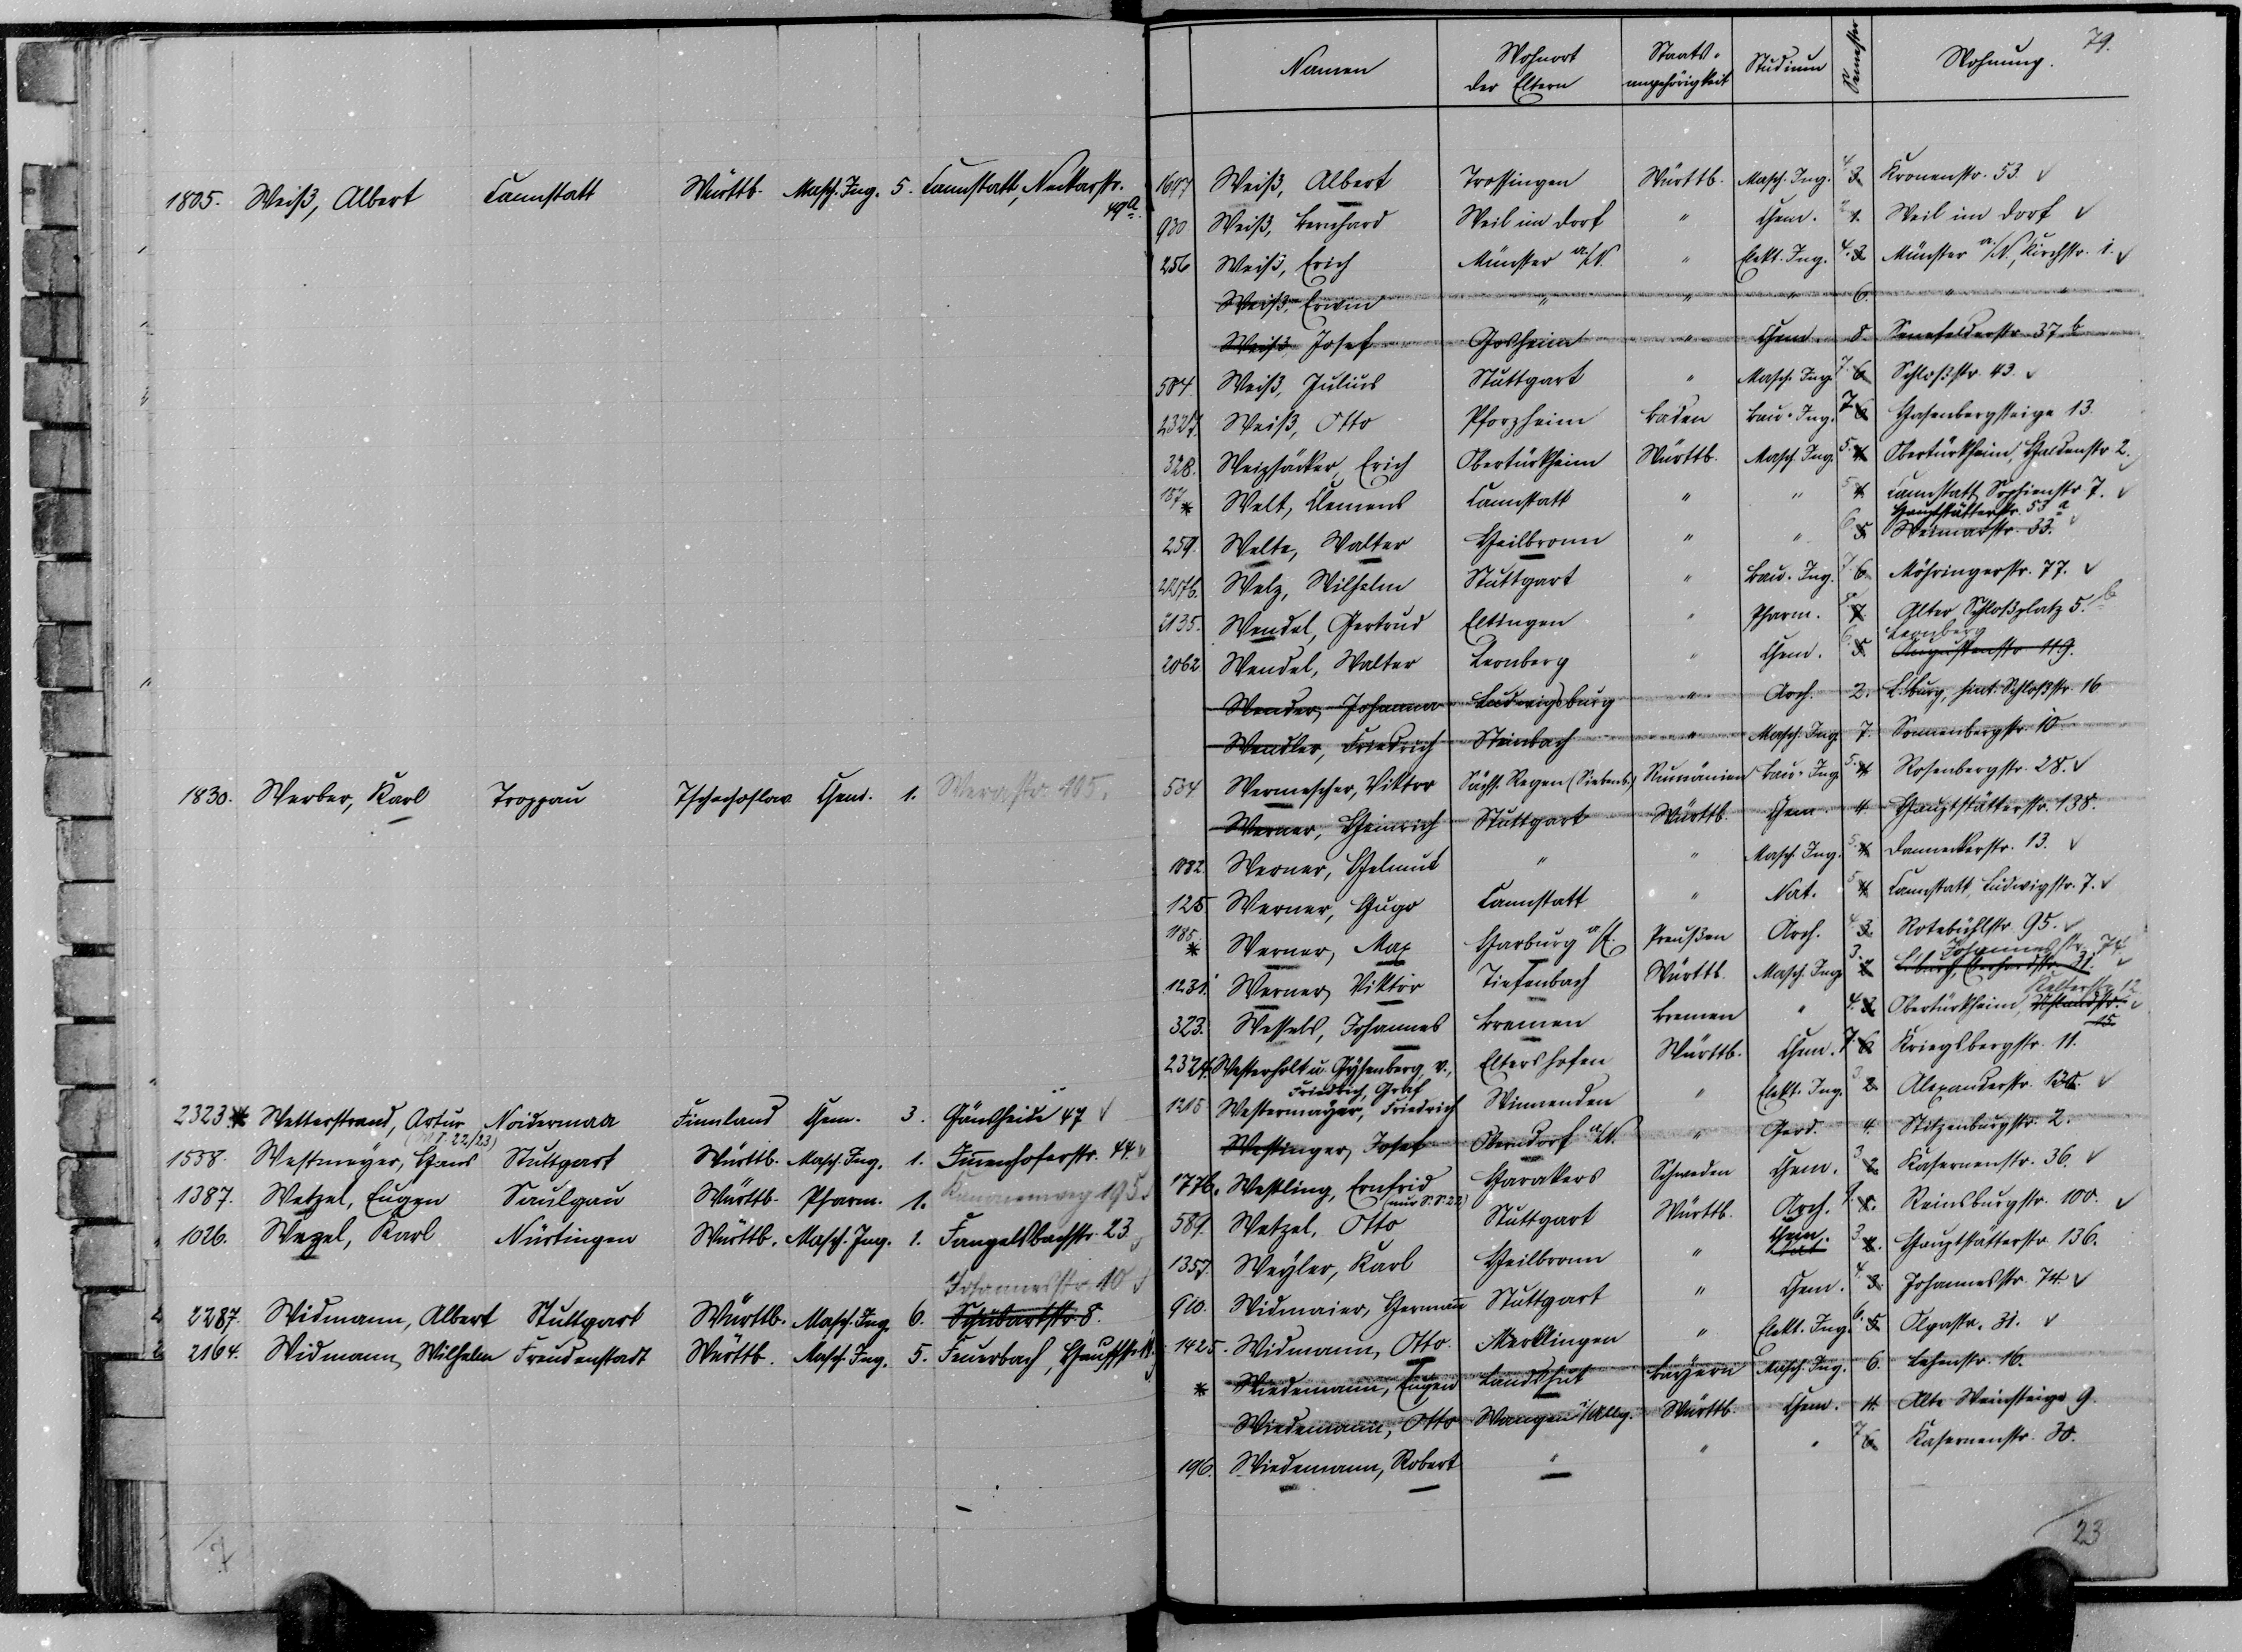 1805. Weiß, Albert Cannstatt Württb. Masch. Ing. 5. Cannstatt, Neckarstr.
49a.
1830. Werber, Karl Troppau Tschechoslow. Chem. 1. Werastr. 105.
2323 * Wetterstrand, Artur Noidermaa Finnland Chem. 3. Gänsheide 47 ✓
1538. Westmeyer, Hans Stuttgart Württb. Masch. Ing. 1. Immenhoferstr. 44. ✓
1387. Wetzel, Eugen Saulgau Württb. Pharm. 1. Kanonenweg 195 ✓
1026. Wezel, Karl Nürtingen Württb. Masch. Ing. 1. Fangelsbachstr. 23. ✓
Johannesstr. 10 ✓
2287. Widmann, Albert Stuttgart Württb. Masch. Ing. 6. Schubartstr. 8.
2164. Widmann, Wilhelm Freudenstadt Württb. Masch. Ing. 5. Feuerbach, Hauffstr.
79.
Namen Wohnort der Eltern Staats-angehörigkeit Studium Semester Wohnung.
1697 Weiß, Albert Trossingen Württb. Masch. Ing. 4. 3. Kronenstr. 53. ✓
930 Weiß, Bernhard Weil im Dorf " Chem. 2. 1. Weil im Dorf ✓
256 Weiß, Erich Münster a/N. " Elekt. Ing. 4. 3. Münster a/N., Kirchstr. 1. ✓
Weiß, Erwin " " " 6. " "
Weiß, Josef Gosheim " Chem. 8. Senefelderstr. 37 b
584. Weiß, Julius Stuttgart " Masch. Ing. 7. 6. Schloßstr. 43. ✓
2327. Weiß, Otto Pforzheim Baden Bau-Ing. 7. 6. Hasenbergsteige 13.
328. Weizsäcker, Erich Obertürkheim Württb. Masch. Ing. 5. 4. Obertürkheim, Haldenstr. 2. ✓
187 * Welt, Clemens Cannstatt " " 5. 4. Cannstatt, Sophienstr. 7. ✓
Hauptstätterstr. 53 a
259. Welte, Walter Heilbronn " " 6. 5. Weimarstr. 33. ✓
Welz, Wilhelm Stuttgart " Bau-Ing. 7. 6. Möhringerstr. 77. ✓
2135. Wendel, Gertrud Eltingen " Pharm. 8. 7. Alter Schloßplatz 5. b
Leonberg
2062 Wendel, Walter Leonberg " Chem. 6. 5. Augustenstr. 119.
Wender, Johanna Ludwigsburg " Arch. 2. L.burg, hint. Schloßstr. 16
Wendler, Friedrich Steinbach " Masch. Ing. 7. Sonnenbergstr. 10
534 Wermescher, Viktor Sächs. Regen (Siebenb.) Rumänien Bau-Ing. 5. 4. Rosenbergstr. 28. ✓
Werner, Heinrich Stuttgart Württb. Chem. 4. Hauptstätterstr. 138.
1882. Werner, Helmut " " Masch. Ing. 5. 4. Danneckerstr. 13. ✓
125 Werner, Hugo Cannstatt " Nat. 5. 4. Cannstatt, Ludwigstr. 7. ✓
1185. * Werner, Max Harburg a/E. Preußen Arch. 4. 3. Rotebühlstr. 95. ✓
Johannesstr. 74.
1231. Werner, Viktor Tiefenbach Württb. Masch. Ing. 3. 2. L.burg, 31. ✓
Kelterstr. 12
323. Wessels, Johannes Bremen Bremen " 4. 3. Obertürkheim, Uhlandstr. ✓
15.
2324. Westerholt u. Gysenberg, v., Eltershofen Württb. Chem. 7. 6. Kriegsbergstr. 11.
Friedrich, Graf
1215 Westermayer, Friedrich Winnenden " Elekt. Ing. 3. 2. Alexanderstr. 136. ✓
Westinger, Josef Oberndorf a/N. " Geod. 4. Stitzenburgstr. 2.
1776. Westling, Ernfrid Harakers Schweden Chem. 3. 2. Kasernenstr. 36. ✓
(nur S.S. 22)
589. Wetzel, Otto Stuttgart Württb. Arch. Reinsburgstr. 100. ✓
1357. Weyler, Karl Heilbronn " Chem. 3. 2. Hauptstätterstr. 136.
910. Widmaier, Hermann Stuttgart " Chem. 4. 3. Johannesstr. 74 ✓
1425. Widmann, Otto Merklingen " Elekt. Ing. 6. 5. Olgastr. 31. ✓
* Wiedemann, Eugen Landshut Bayern Masch. Ing. 6. Lehenstr. 16.
Wiedemann, Otto Wangen i/Allg. Württb. Chem. 4. Alte Weinsteige 9.
196. Wiedemann, Robert " " " 7. 6. Kasernenstr. 30.
7
23